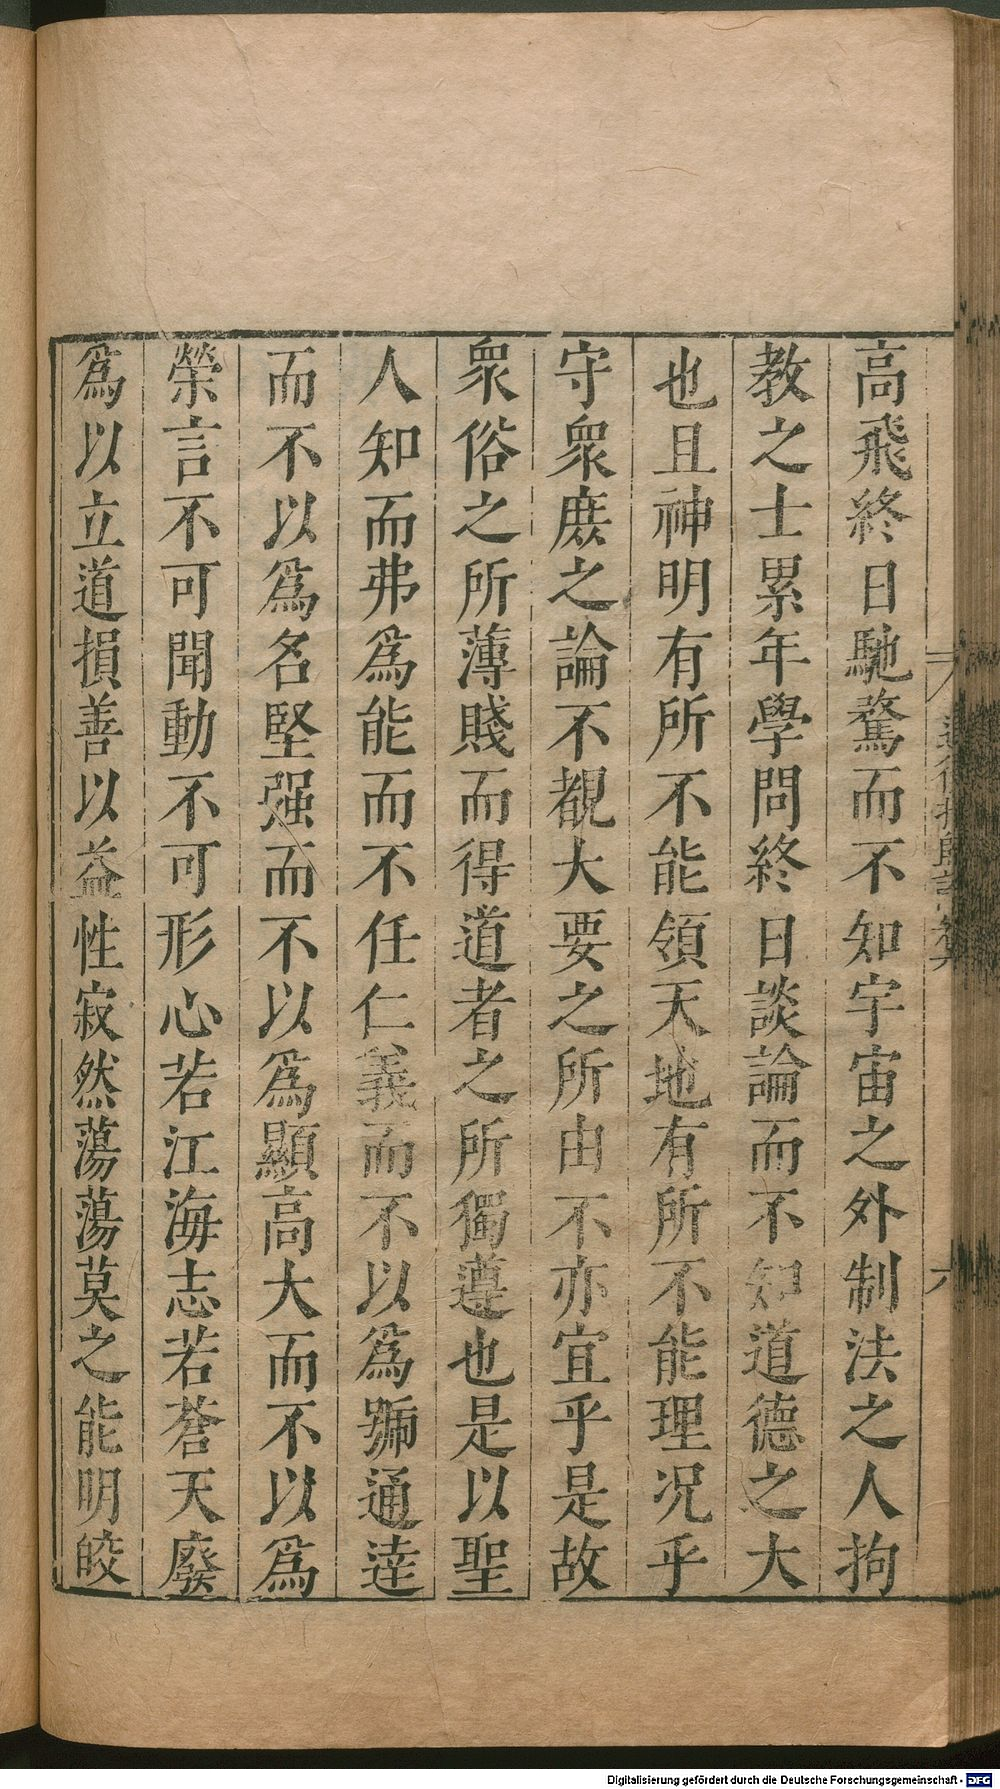 高飛終日馳騖而不知宇宙之外制法之人拘
教之士累年學問終日談論而不知道德之大
也且神明有所不能領天地有所不能理况乎
守衆庶之論不覩大要之所由不亦宜乎是故
衆俗之所薄賤而得道者之所獨遵也是以聖
人知而弗爲能而不任仁義而不以爲號通達
而不以爲名堅强而不以爲顯高大而不以爲
榮言不可聞動不可形心若江海志若蒼天廢
爲以立道損善以益性寂然蕩蕩莫之能明皎
六
Digitalisierung gefördert durch die Deutsche Forschungsgemeinschaft - DFG